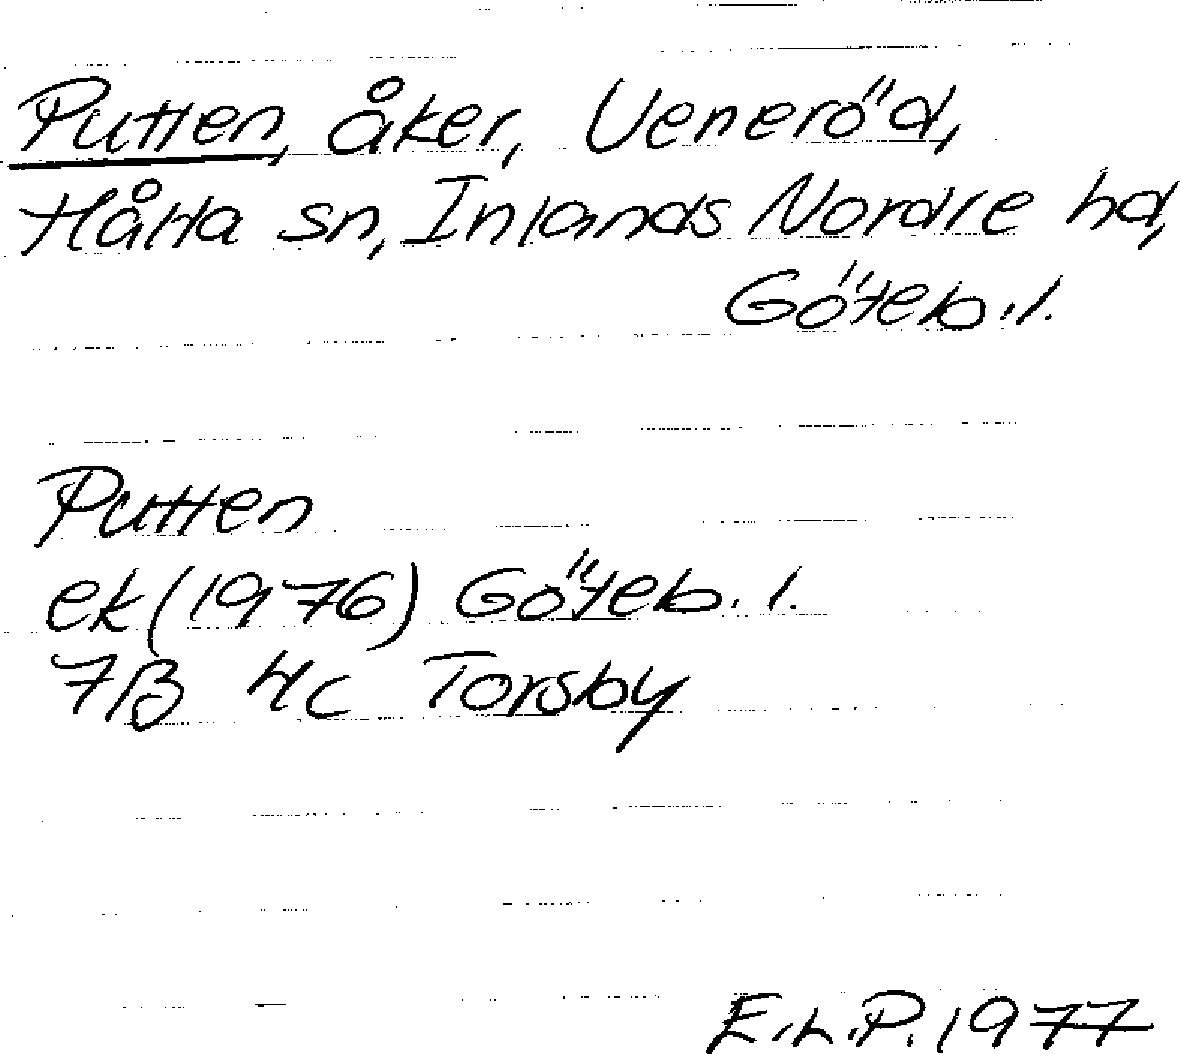 Putten, åker, Ueneröd,
Hålta sn, Inlands Nordre hd,
Göteb. l.
Putten
ek (1976) Göteb. l.
7B 4c Torsby
E.L.P. 1977